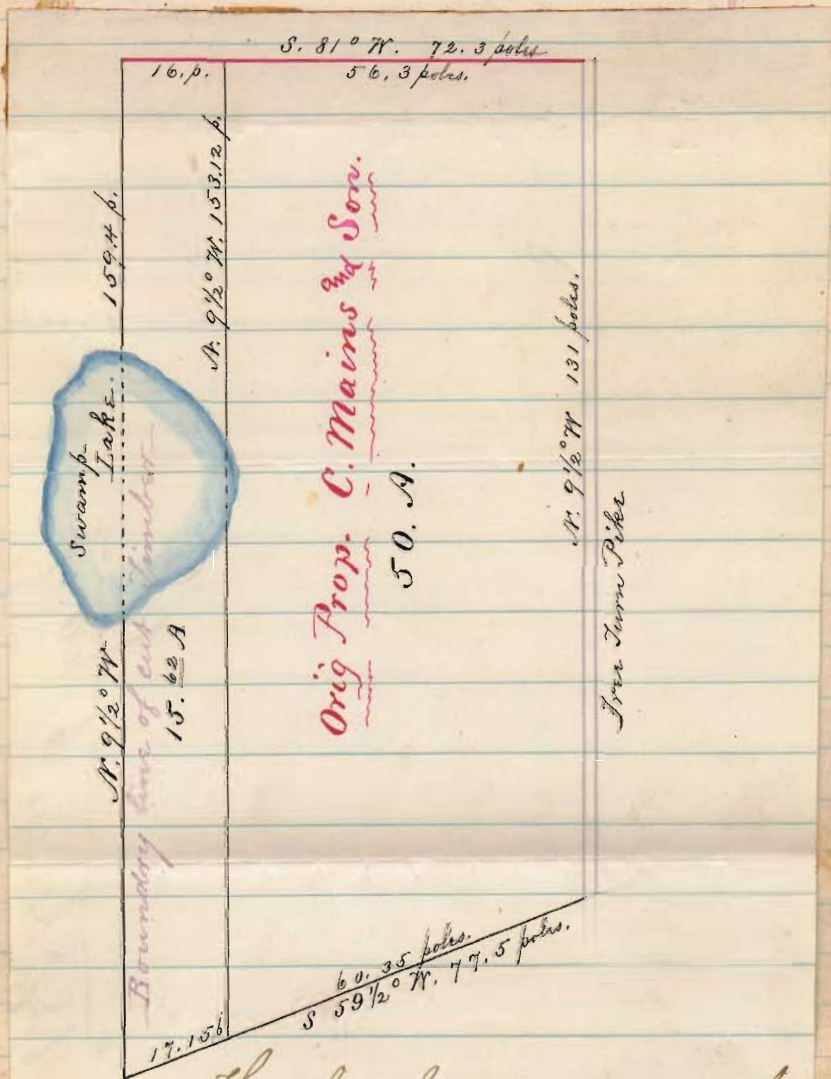 S. 81° W. 72.3 poles
16. p.
56.3 poles.
159.4 p.
N. 9½° W. 153.12 p.
Swamp
Lake.
N. 9½° W
Boundry line of cut Timber
15.62 A
Orig Prop. C. Mains and Son.
50. A.
N. 9½° W 131 poles.
Free Turn Pike
60.35 poles.
S 59½° W. 77.5 poles.
17.15